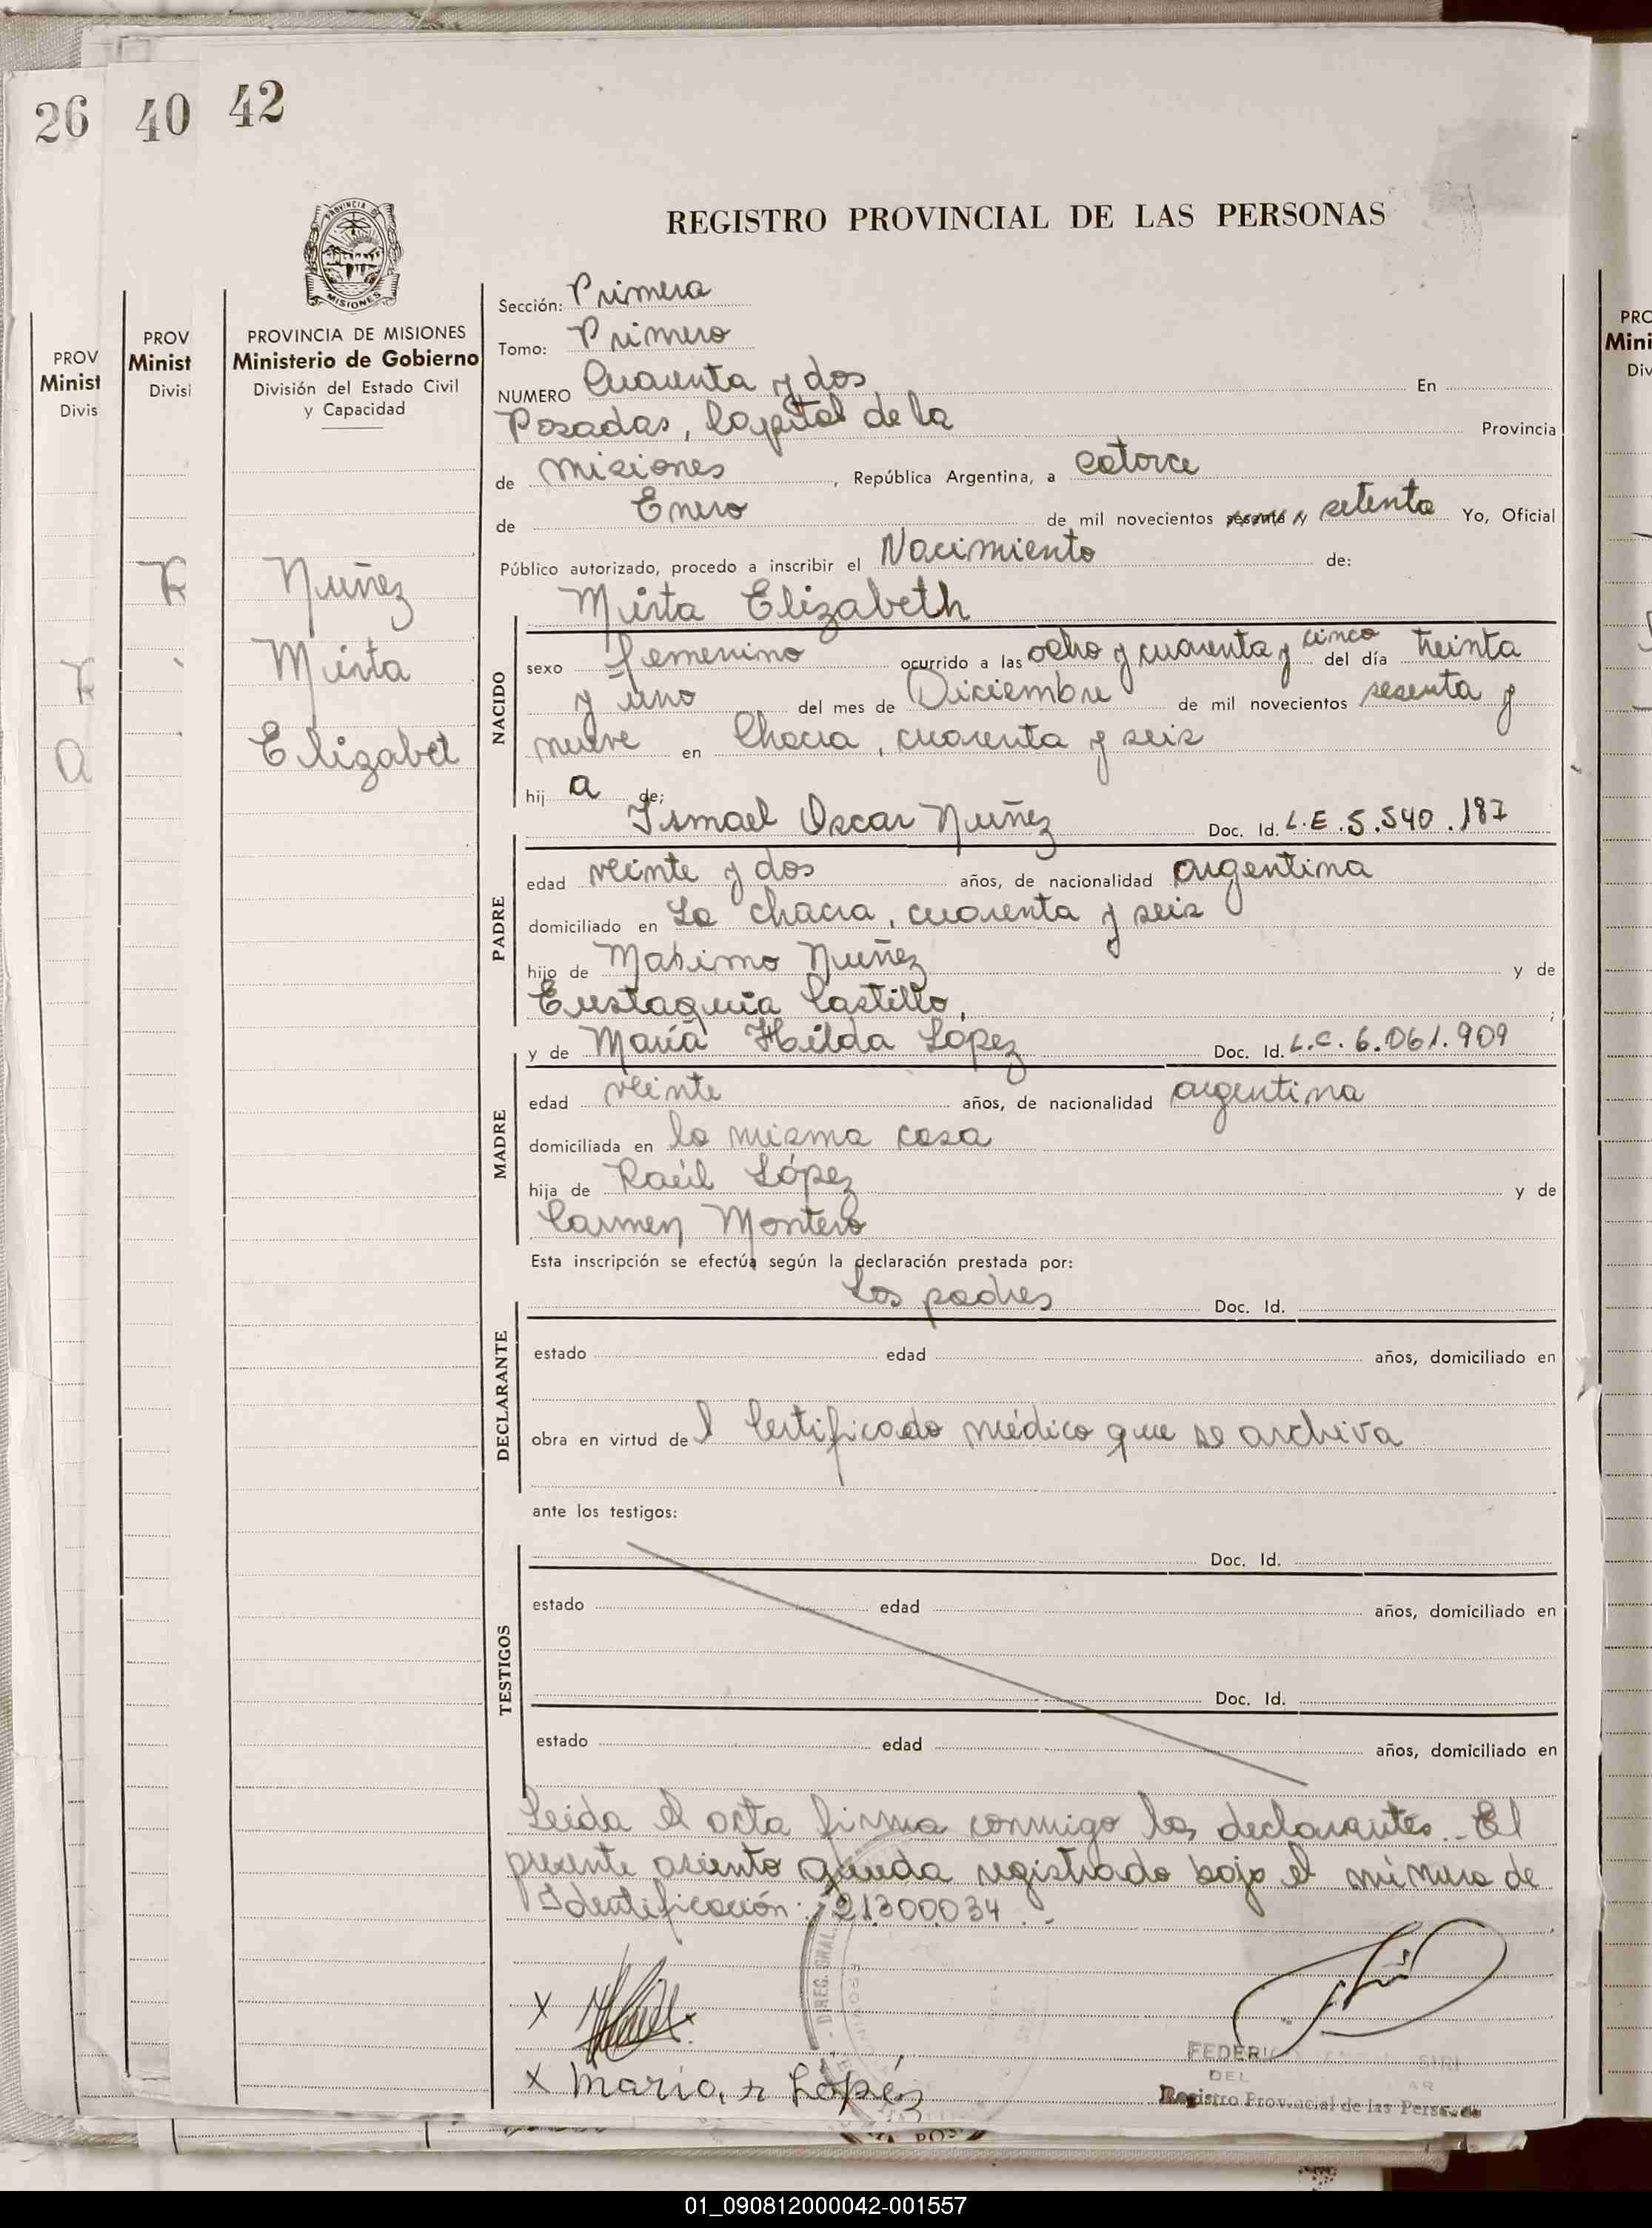 26 40 42
PROVINCIA DE
MISIONES
REGISTRO PROVINCIAL DE LAS PERSONAS
PROV
Minist
Divis
PROV
Minist
Divisi
PROVINCIA DE MISIONES
Ministerio de Gobierno
División del Estado Civil
y Capacidad
Nuñez
Mirta
Elizabet
Sección: Primera
Tomo: Primero
NUMERO Cuarenta y dos En
Posadas, Capital de la Provincia
de Misiones, República Argentina, a catorce
de Enero de mil novecientos sesenta y setenta Yo, Oficial
Público autorizado, procedo a inscribir el Nacimiento de:
Mirta Elizabeth
NACIDO
sexo femenino ocurrido a las ocho y cuarenta y cinco del día treinta
y uno del mes de Diciembre de mil novecientos sesenta y
nueve en Chacra, cuarenta y seis
hij a de;
Ismael Oscar Nuñez Doc. Id. L.E. 5.540.187
PADRE
edad veinte y dos años, de nacionalidad argentina
domiciliado en La chacra, cuarenta y seis
hijo de Maximo Nuñez y de
Eustaquia Castillo, ;
y de María Hilda López Doc. Id. L.C. 6.061.909
MADRE
edad veinte años, de nacionalidad argentina
domiciliada en la misma casa
hija de Raúl López y de
Carmen Montero
Esta inscripción se efectúa según la declaración prestada por:
Los padres Doc. Id.
DECLARANTE
estado edad años, domiciliado en
obra en virtud de l Certificado médico que se archiva
ante los testigos:
Doc. Id.
TESTIGOS
estado edad años, domiciliado en
Doc. Id.
estado edad años, domiciliado en
Leida el acta firma conmigo los declarantes.- El
presente asiento queda registrado bajo el número de
Identificación: 21.300.034.-
DIREC. GRAL.
x
x Maria, H López
FEDERI SIRI
DEL
Registro Provincial de las Personas
PRO
Mini
Div
01_090812000042-001557